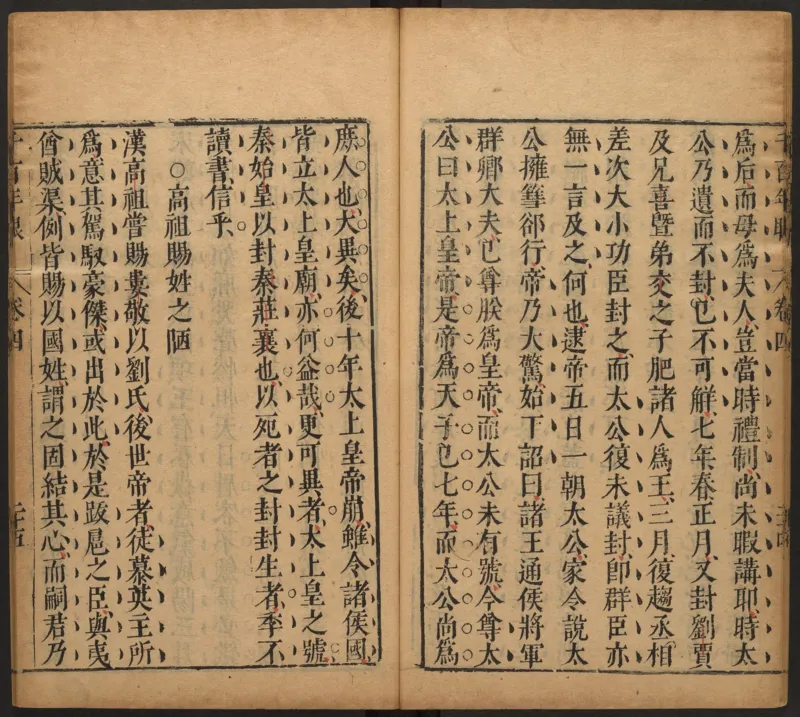 爲后而母爲夫人豈當時禮制尚未暇講耶時太
公乃遺而不封也不可觧七年春正月又封劉賈
及兄喜暨弟交之子肥諸人爲王三月復趨丞相
差次大小功臣封之而太公復未議封卽群臣亦
無一言及之何也逮帝五日一朝太公家令說太
公擁篲郤行帝乃大驚始下詔曰諸王通侯將軍
群卿大夫已尊朕爲皇帝而太公未有號今尊太
公曰太上皇帝是帝爲天子已七年而太公尚爲
千百年眼 卷四
庶人也大異矣後十年太上皇帝崩雖令諸侯國
皆立太上皇廟亦何益哉更可異者太上皇之號
秦始皇以封秦莊襄也以死者之封封生者季不
讀書信乎
○高祖賜姓之陋
漢高祖嘗賜婁敬以劉氏後世帝者徒慕英主所
爲意其駕馭豪傑或出於此於是跋扈之臣與夷
酋賊渠例皆賜以國姓謂之固結其心而嗣君乃